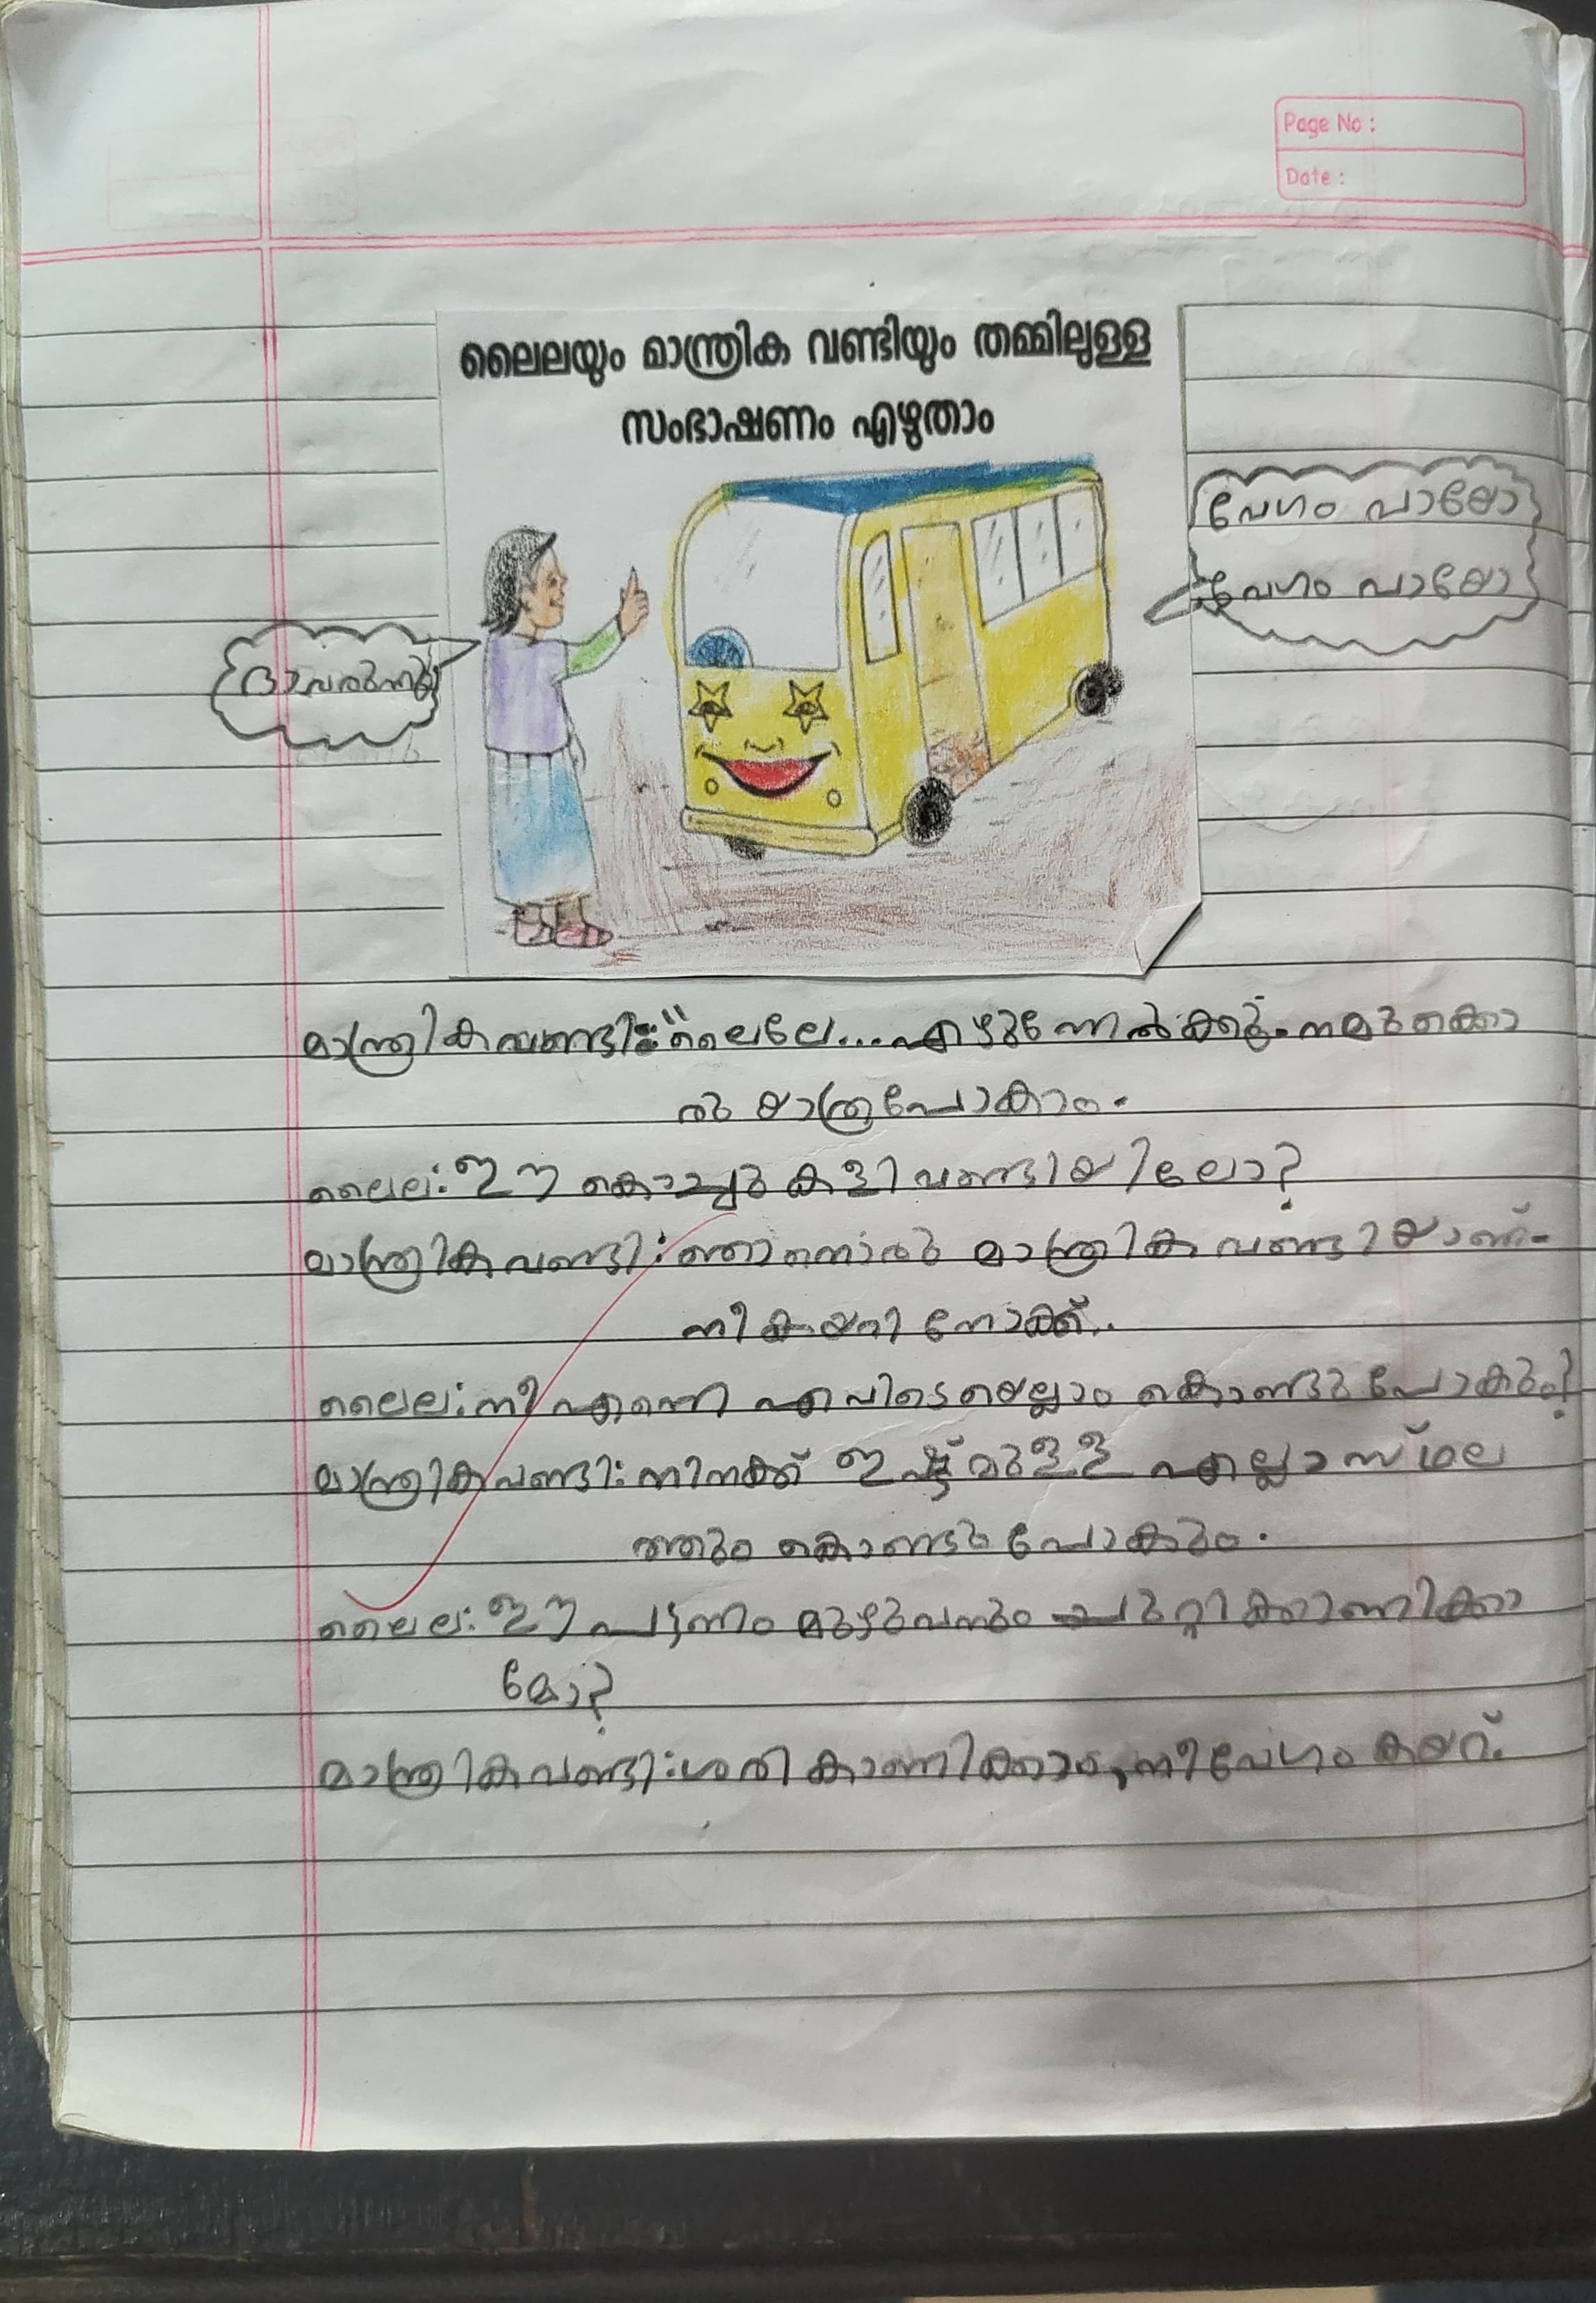 Page No :
Date :
ലൈലയും മാന്ത്രിക വണ്ടിയും തമ്മിലുള്ള
സംഭാഷണം എഴുതാം
വേഗം വായോ
വേഗം വായോ
ദാ വരുന്നു
മാന്ത്രികവണ്ടി: "ലൈലേ... എഴുന്നേൽക്കൂ. നമുക്കൊ
രു യാത്രപോകാം.
ലൈല: ഈ കൊച്ചു കളിവണ്ടിയിലോ?
മാന്ത്രികവണ്ടി: ഞാനൊരു മാന്ത്രിക വണ്ടിയാണ്.
നീ കയറി നോക്ക്..
ലൈല: നീ എന്നെ എവിടെയെല്ലാം കൊണ്ടുപോകും?
മാന്ത്രികവണ്ടി: നിനക്ക് ഇഷ്ട്മുള്ള എല്ലാ സ്ഥല
ത്തും കൊണ്ടുപോകും.
ലൈല: ഈ പട്ടണം മുഴുവനും ചുറ്റിക്കാണിക്കാ
മോ?
മാന്ത്രികവണ്ടി: ശരി കാണിക്കാം, നീ വേഗം കയറ്.